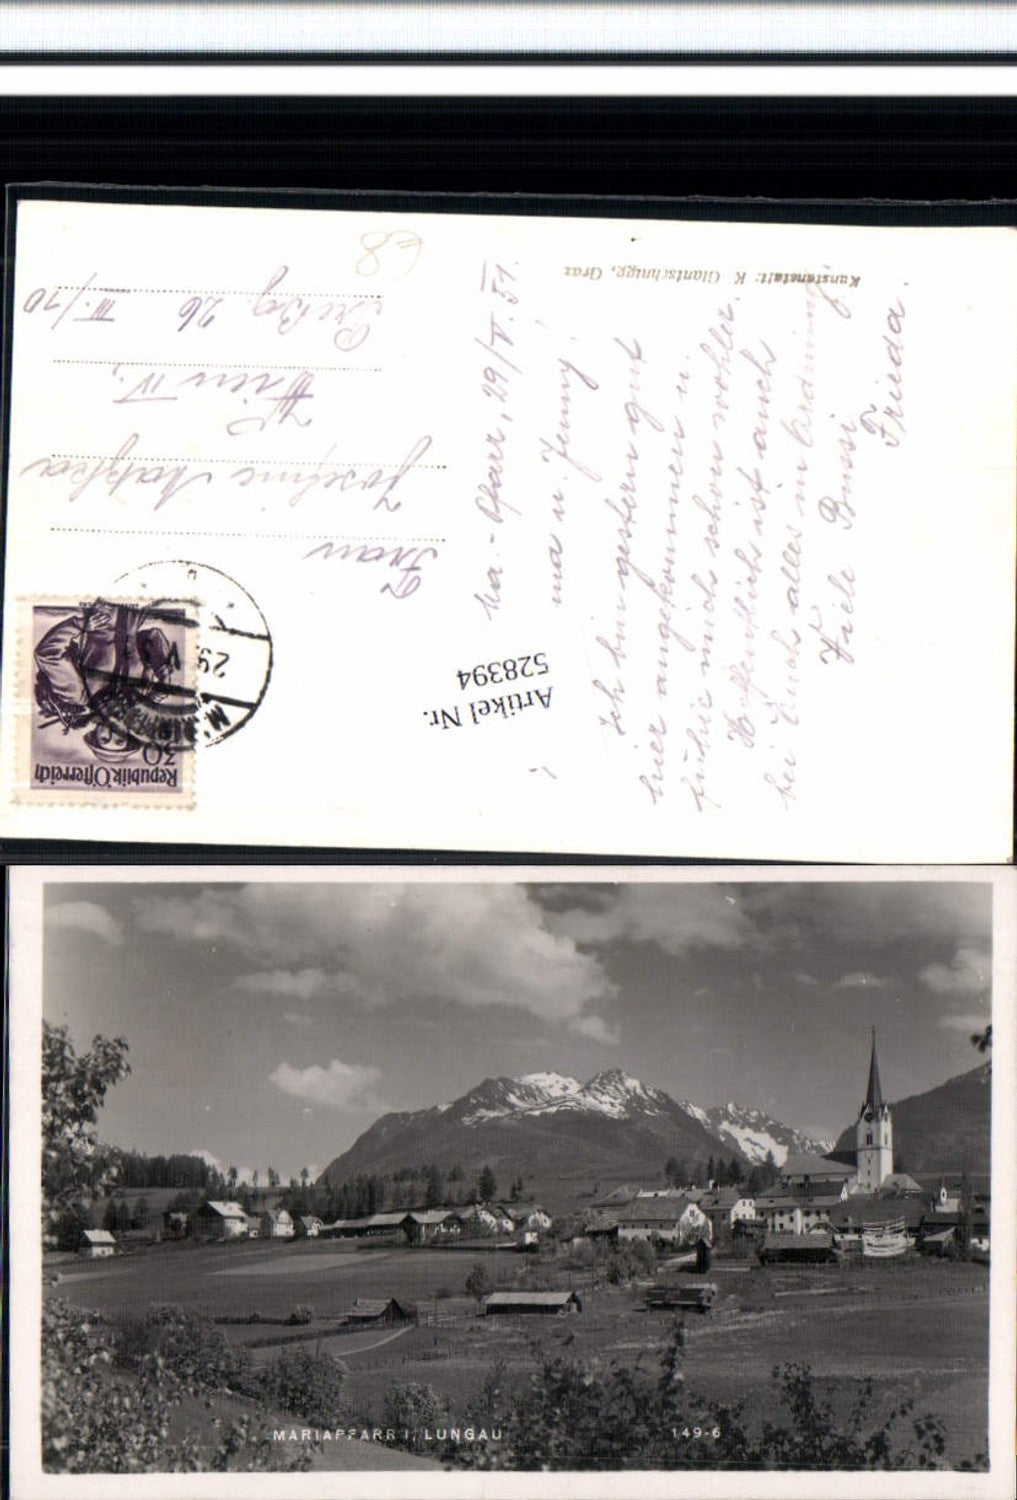 Kunstanstalt: K. Glantschnigg, Graz
Ma.-Pfarr, 29/V. 51.
ma u. Jenny!
Ich bin gestern gut
hier angekommen u.
fühle mich schon wohler.
Hoffentlich ist auch
bei Euch alles in Ordnung
Viele Bussi
Frieda.
Artikel Nr.
528394
Republik Österreich
30
29. V
Frau
Josefine
Wien IV.,
26 III./10
MARIAPFARR I. LUNGAU
149-6